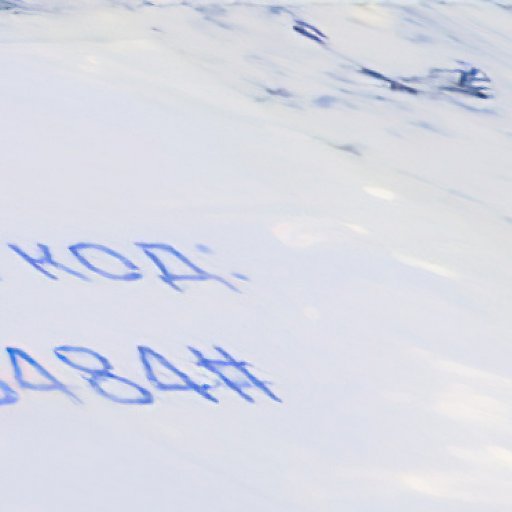 код:
484#